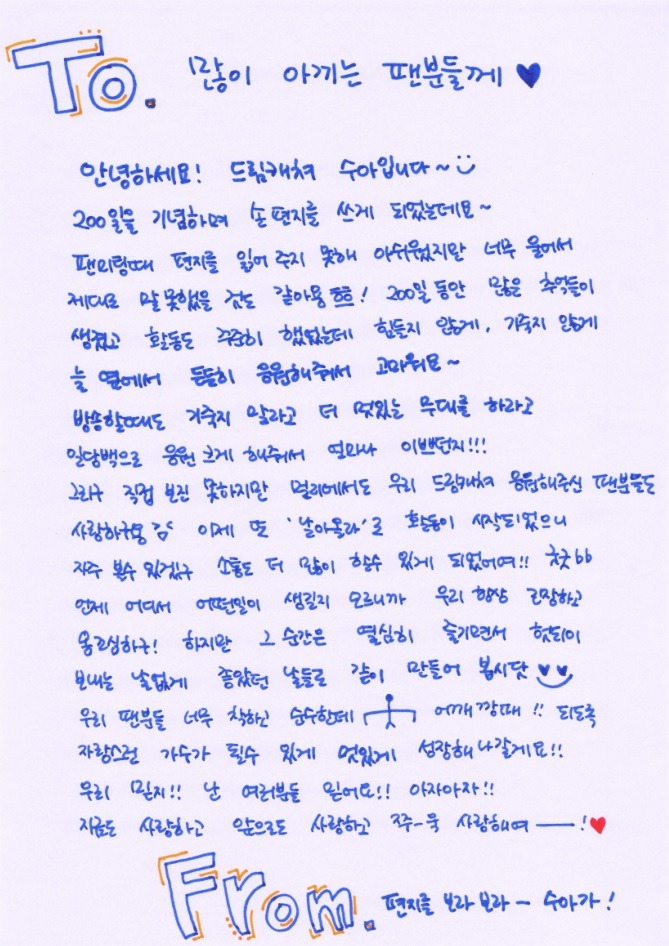 To. 많이 아끼는 팬분들께 ♥
안녕하세요! 드림캐쳐 수아입니다~
200일을 기념하며 손편지를 쓰게 되었는데요~
팬미팅때 편지를 읽어 주지 못해 아쉬웠지만 너무 울어서
제대로 말 못했을 것도 같아용 ㅎㅎ! 200일 동안 많은 추억들이
생겼고 활동도 꾸준히 했었는데 힘들지 않게, 기죽지 않게
늘 옆에서 든든히 응원해줘서 고마워요~
방송할때도 기죽지 말라고 더 멋있는 무대를 하라고
일당백으로 응원 크게 해줘서 얼마나 이쁘던지!!!
그리구 직접 보진 못하지만 멀리에서도 우리 드림캐쳐 응원해주신 팬분들도
사랑하구용 이제 또 '날아올라'로 활동이 시작되었으니
자주 볼수 있겠구 소통도 더 많이 할수 있게 되었어여!! 굿굿bb
언제 어디서 어떤일이 생길지 모르니까 우리 항상 긴장하고
몸조심하구! 하지만 그 순간은 열심히 즐기면서 헛되이
보내는 날없게 좋았던 날들로 같이 만들어 봅시닷
우리 팬분들 너무 착하고 순수한데 어깨깡패!! 되도록
자랑스런 가수가 될수 있게 멋있게 성장해나갈게요!!
우리 믿지!! 난 여러분들 믿어요!! 아자아자!!
지금도 사랑하고 앞으로도 사랑하고 쭈-욱 사랑해여ㅡ! ♥
From. 편지를 보라 보라ㅡ 수아가!